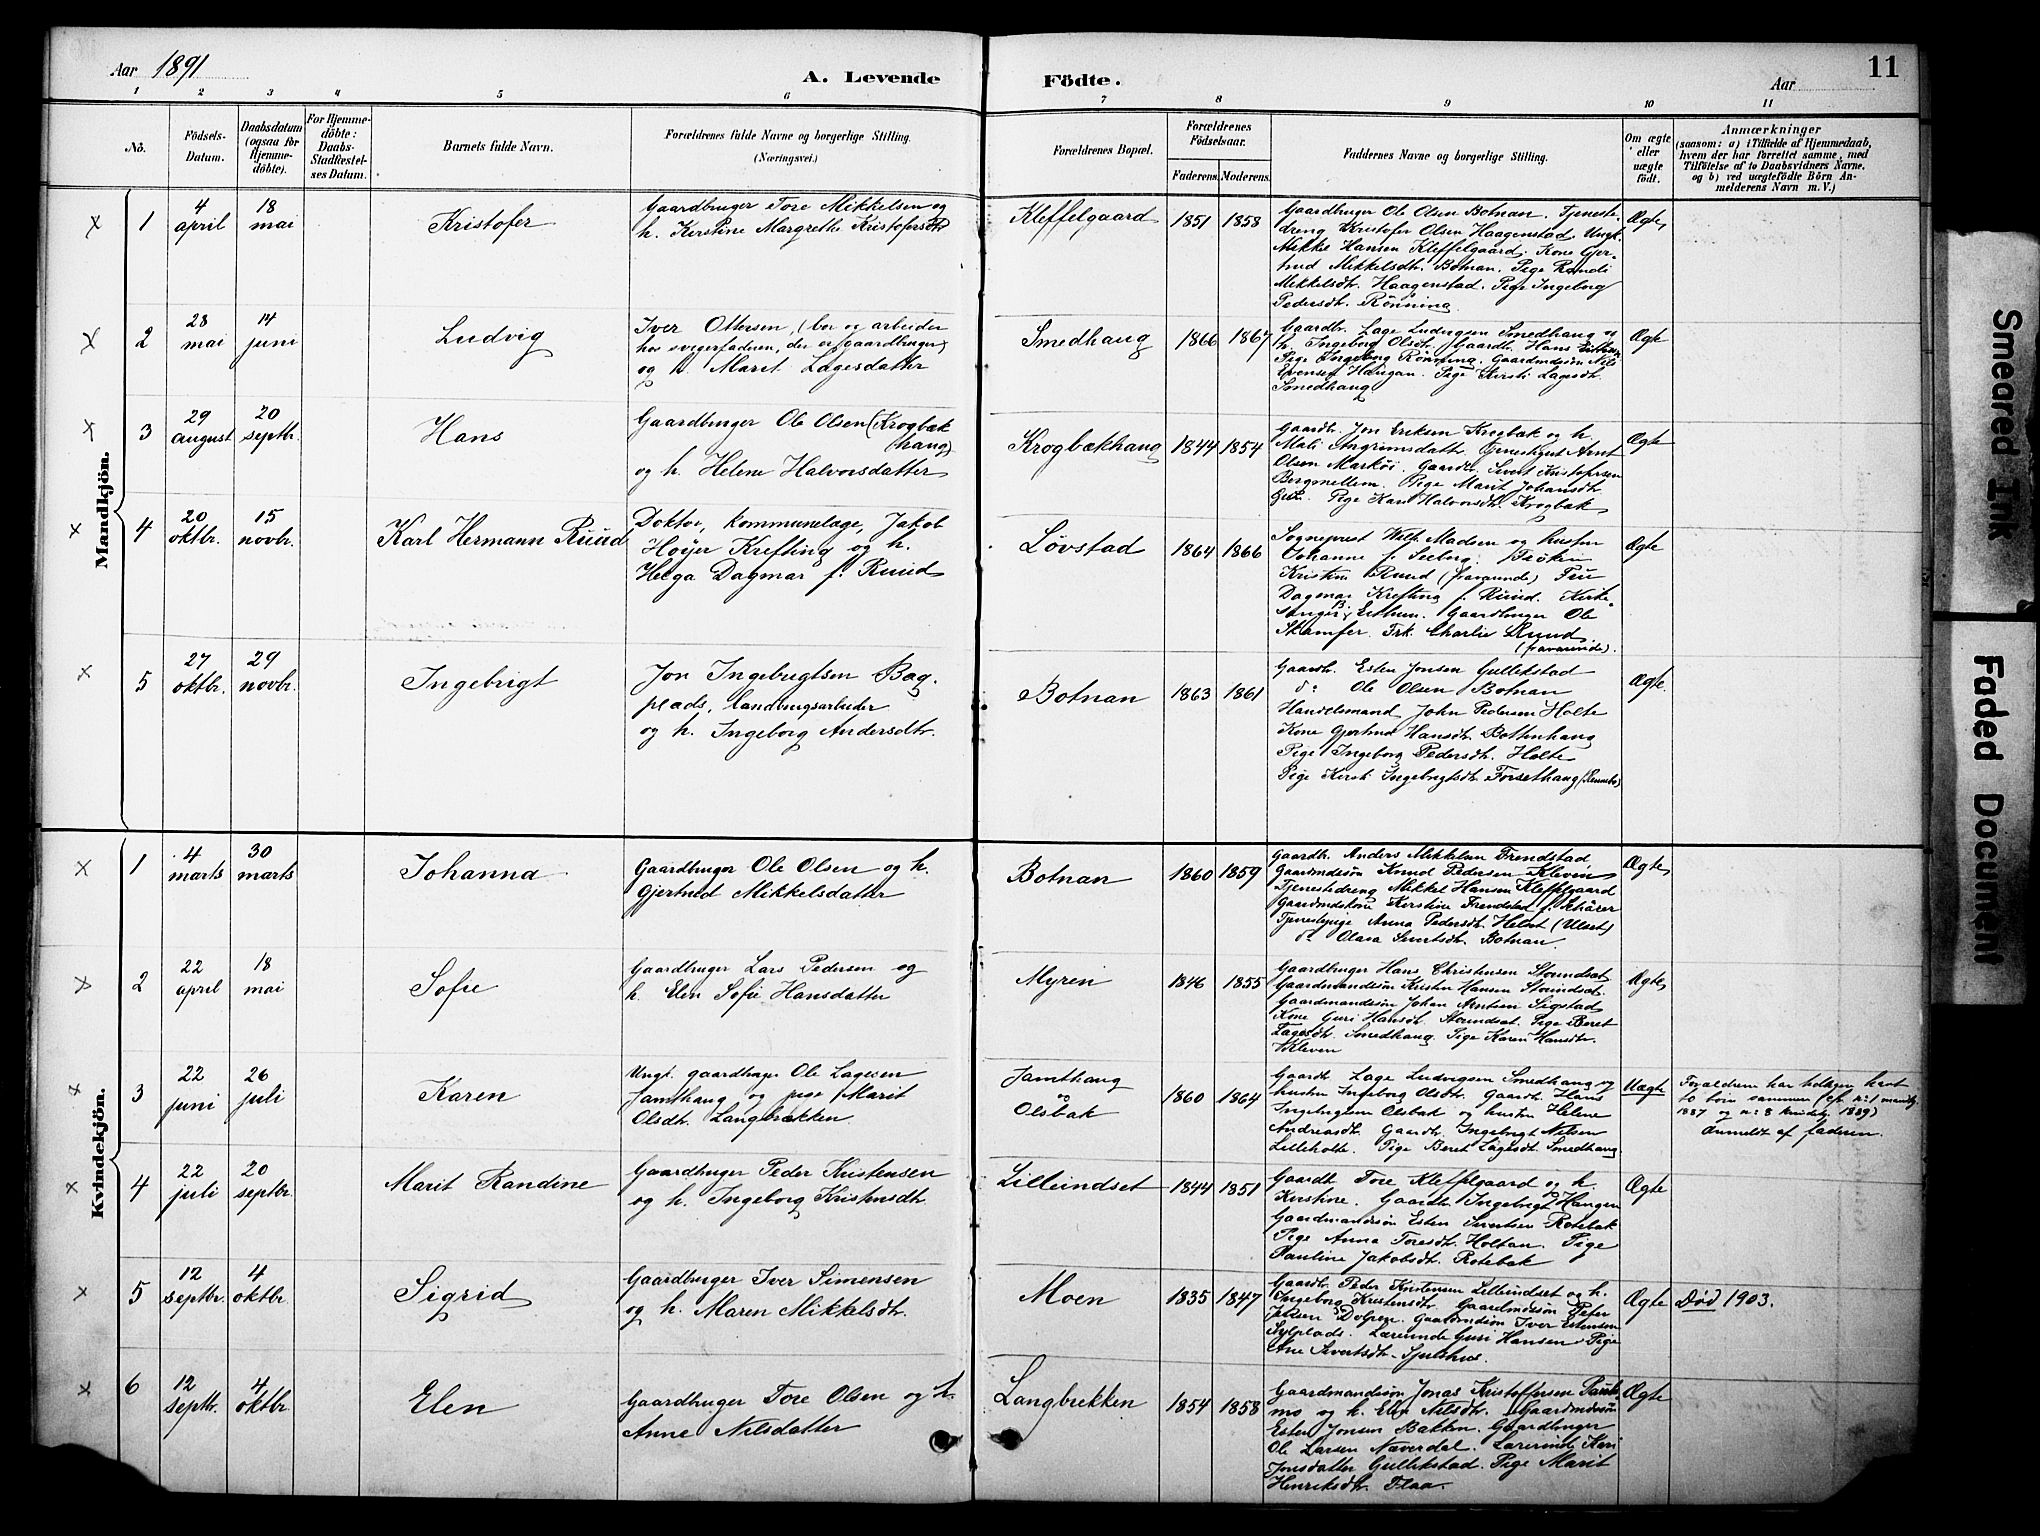 Aar 1891
A. Levende Födte.
Aar
11
1 2 3 4 5 6 7 8 9 10 11
No.
Födsels-Datum.
Daabsdatum (ogsaa for Hjemmedöbte).
For Hjemmedöbte: Daabs-Stadfæstelses Datum.
Barnets fulde Navn.
Forældrenes fulde Navne og borgerlige Stilling.
(Næringsvei.)
Forældrenes Bopæl.
Forældrenes Födselsaar.
Faderens. Moderens.
Faddernes Navne og borgerlige Stilling.
Om ægte eller uægte födt.
Anmærkninger
(saasom: a) i Tilfælde af Hjemmedaab,
hvem der har forrettet samme, med
Tilföielse af to Daabsvidners Navne.
og b) ved uægtefödte Börn Anmelderens Navn m. V.)
Mandkjön.
1 4 april 18 mai Kristofer
Gaardbruger Tore Mikkelsen og
h. Kerstine Margrethe Kristofersdt.
Kleffelgaard 1851 1858
Gaardbruger Ole Olsen Botnan. Tjeneste-
dreng Kristofer Olsen Haagenstad. Ungk.
Mikkel Hansen Kleffelgaard. Kone Gjer-
trud Mikkelsdt. Botnan. Pige Randi
Mikkelsdt. Haagenstad. Pige Ingeborg
Pedersdt. Rønning
Ægte
2 28 mai 14 juni Ludvig
Iver Ottersen, (bor og arbeider
hos svigerfaderen, der er gaardbruger)
og h. Marit Lagesdatter
Smedhaug 1866 1867
Gaardbr. Lage Ludvigsen Smedhaug og
h. Ingeborg Olsdt. Gaardbr. Hans
Pige Ingeborg Rønning. Gaardmdsøn Nils
Evensen Haugan. Pige Kersti Lagesdt.
Smedhaug
Ægte
3 29 august 20 septbr. Hans
Gaardbruger Ole Olsen (Krogbæk
haug)
og h. Helene Halvorsdatter
Krogbækhaug 1844 1854
Gaardb. Jon Eriksen Krogbæk og h.
Mali Arngrimsdatter. Tjenestgut Arnt
Olsen Markøi. Gaardbr. Sivert Kristofersen
Bergmellem. Pige Marit Johansdt.
Pige Kari Halvorsdt. Krogbæk
Ægte
4 20 oktbr. 15 novbr. Karl Hermann Ruud
Doktor, kommunelæge, Jakob
Høyer Krefting og h.
Helga Dagmar f. Ruud
Løvstad 1864 1866
Sogneprest Wilh. Madsen og hustru
Johanne f. Seeberg. Frøken
Kristine Ruud (fraværende) Fru
Dagmar Krefting f. Ruud. Kirke-
sanger B. Eithun. Gaardbruger Ole
Skamfer. Frk. Charlie Ruud
(fraværende).
Ægte
5 27 oktbr. 29 novbr. Ingebrigt
Jon Ingebrigtsen Bag-
plads, landbrugsarbeider
og h. Ingeborg Andersdtr.
Botnan 1863 1861
Gaardbr. Esten Jonsen Gullikstad
do Ole Olsen Botnan
Handelsmand John Pedersen Holte
Kone Gjertrud Hansdt. Bottenhaug
Pige Ingeborg Pedersdt. Holte
Pige Kersti Ingebrigtsdt. Forsethaug (Rennebo)
Ægte.
Kvindekjön.
1 4 marts 30 marts Johanna
Gaardbruger Ole Olsen og h.
Gjertrud Mikkelsdatter
Botnan 1860 1859
Gaardbr. Anders Mikkelsen Frendstad
Gaardmdsøn Knud Pedersen Kleven
Tjenestedreng Mikkel Hansen Kleffelgaard
Gaardmdskone Kerstine Frendstad f. Schärer
Tjenestepige Anna Pedersdt. Helset (Ulset)
do Olava Sivertsdt. Botnan.
Ægte
2 22 april 18 mai Sofie
Gaardbruger Lars Pedersen og
h. Elen Sofie Hansdatter
Myren 1846 1855
Gaardbruger Hans Christensen Storindset
Gaardmandssøn Kristen Hansen Storindset.
Gaardmandsøn Johan Arntsen Sigstad
Kone Guri Hansdt. Storindset. Pige Beret
Lagesdt. Smedhaug. Pige Karen Hansdtr.
Kleven
Ægte
3 22 juni 26 juli Karen
Ungk. gaardbruger Ole Lagesen
Jamthaug og pige Marit
Olsdt. Langbrækken
Jamthaug
og
Olsbak 1860 1864
Gaardb. Lage Ludvigsen Smedhaug og
hustru Ingeborg Olsdt. Gaardb. Hans
Ingebrigtsen Olsbak og hustru Helene
Andreasdt. Gaardb. Ingebrigt Nilsen
Lilleholte. Pige Beret Lagesdt. Smedhaug
Uægte
Forældrene har tidligere havt
to børn sammen (cfr. no 1 mandkj.
1887 og no 8 kvindekj. 1889)
Anmeldt af faderen.
4 22 juli 20 septbr. Marit Randine
Gaardbruger Peder Kristensen
og h. Ingeborg Kristensdt.
Lilleindset 1844 1851
Gaardb. Tore Kleffelgaard og h.
Kerstine. Gaardb. Ingebrigt Haugen
Gaardmandsøn Esten Sivertsen Rotebak
Pige Anna Toresdt. Holtan. Pige
Pauline Jakobsdt. Rotebak
Ægte
5 12 septbr. 4 oktbr. Sigrid
Gaardbruger Iver Simensen
og h. Maren Mikkelsdt.
Moen 1835 1847
Gaardbr. Peder Kristensen Lilleindset og h.
Ingeborg Kristensdt. Gaardmdsøn Peter
Jensen Dølpen. Gaardmdsøn Iver Estensen
Sylplads. Lærerinde Guri Hansen. Pige
Ane Sivertsdt. Sjulshus.
Ægte Død 1903.
6 12 septbr. 4 oktbr. Elen
Gaardbruger Tore Olsen og h.
Anne Nilsdatter
Langbrekken 1854 1858
Gaardmandsøn Jonas Kristoffersen
mo og h. Elen Nilsdt. Gaardmdsøn
Esten Jonsen Bakken. Gaardbruger
Ole Larsen Næverdal. Lærerinde Kari
Jonsdatter Gullikstad. Pige Marit
Henriksdt. Flaa.
Ægte
Smeared Ink
Faded Document